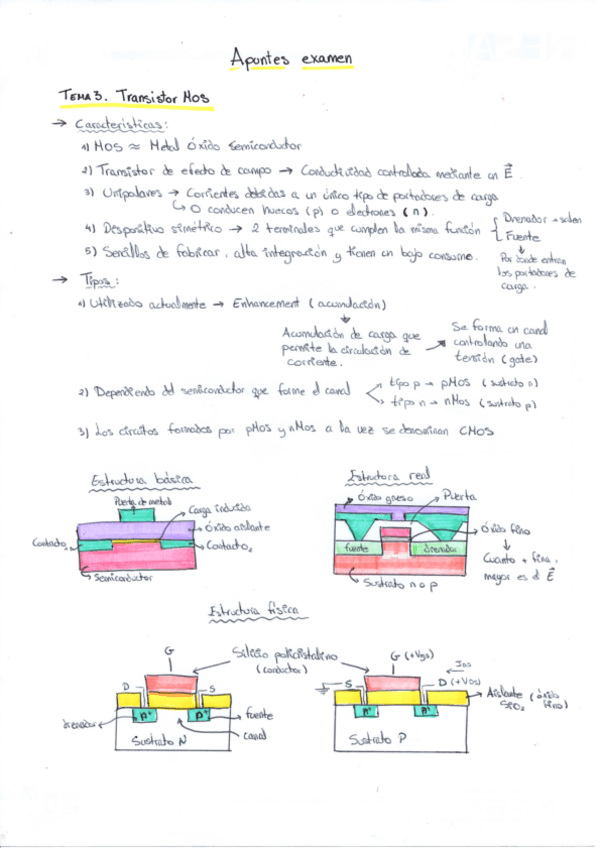 Apuntes examen
TEMA 3. Transistor MOS
→ Características:
1) MOS ≈ Metal Óxido Semiconductor
2) Transistor de efecto de campo → Conductividad controlada mediante un E⃗.
3) Unipolares → Corrientes debidas a un único tipo de portadores de carga
↳ O conducen huecos (p) o electrones (n).
4) Dispositivo simétrico → 2 terminales que cumplen la misma función { Drenador → salen
Fuente
↓
Por donde entran
los portadores de
carga.
5) Sencillos de fabricar, alta integración y tienen un bajo consumo.
→ Tipos:
1) Utilizado actualmente → Enhancement (acumulación)
↓
Acumulación de carga que
permite la circulación de
corriente.
→ Se forma un canal
controlando una
tensión (gate)
2) Dependiendo del semiconductor que forme el canal
tipo p → pMOS (sustrato n)
tipo n → nMOS (sustrato p)
3) Los circuitos formados por pMos y nMos a la vez se denominan CMOS
Estructura básica
Puerta de metal
Carga inducida
Óxido aislante
Contacto
Contacto₂
Semiconductor
Estructura real
Óxido grueso
Puerta
Óxido fino
↓
Cuanto + fino,
mayor es el E⃗
fuente
drenador
Sustrato n o p
Estructura física
G
Silicio policristalino
(conductor)
D
S
drenador
P⁺
P⁺
fuente
canal
Sustrato N
G (+VGS)
IDS
S
D (+VDS)
Aislante (óxido
SiO₂ fino)
Sustrato P